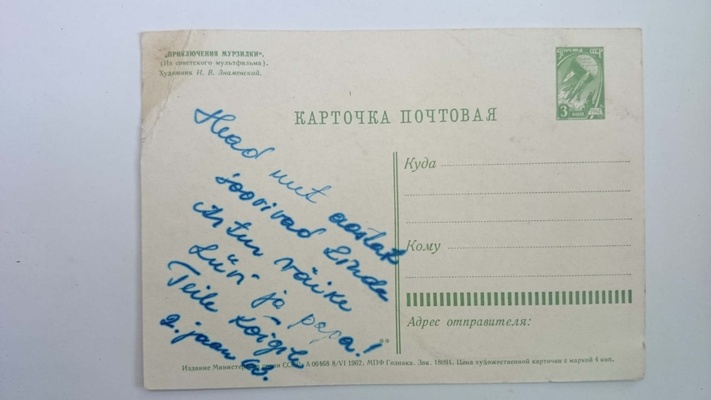 „ПРИКЛЮЧЕНИЯ МУРЗИЛКИ".
(Из советского мультфильма).
Художник Н. В. Знаменский.
ПОЧТА СССР
3
КАРТОЧКА ПОЧТОВАЯ
Куда
Кому
Адрес отправителя:
Head uut aastat
soovivad Linda
Artur väike
Liivi ja papa!
Teile kõigile
2. jaan 63.
Издание Министерства связи СССР А 06468 8/VI 1962. МПФ Гознака. Зак. Цена художественной карточки с маркой 4 коп.